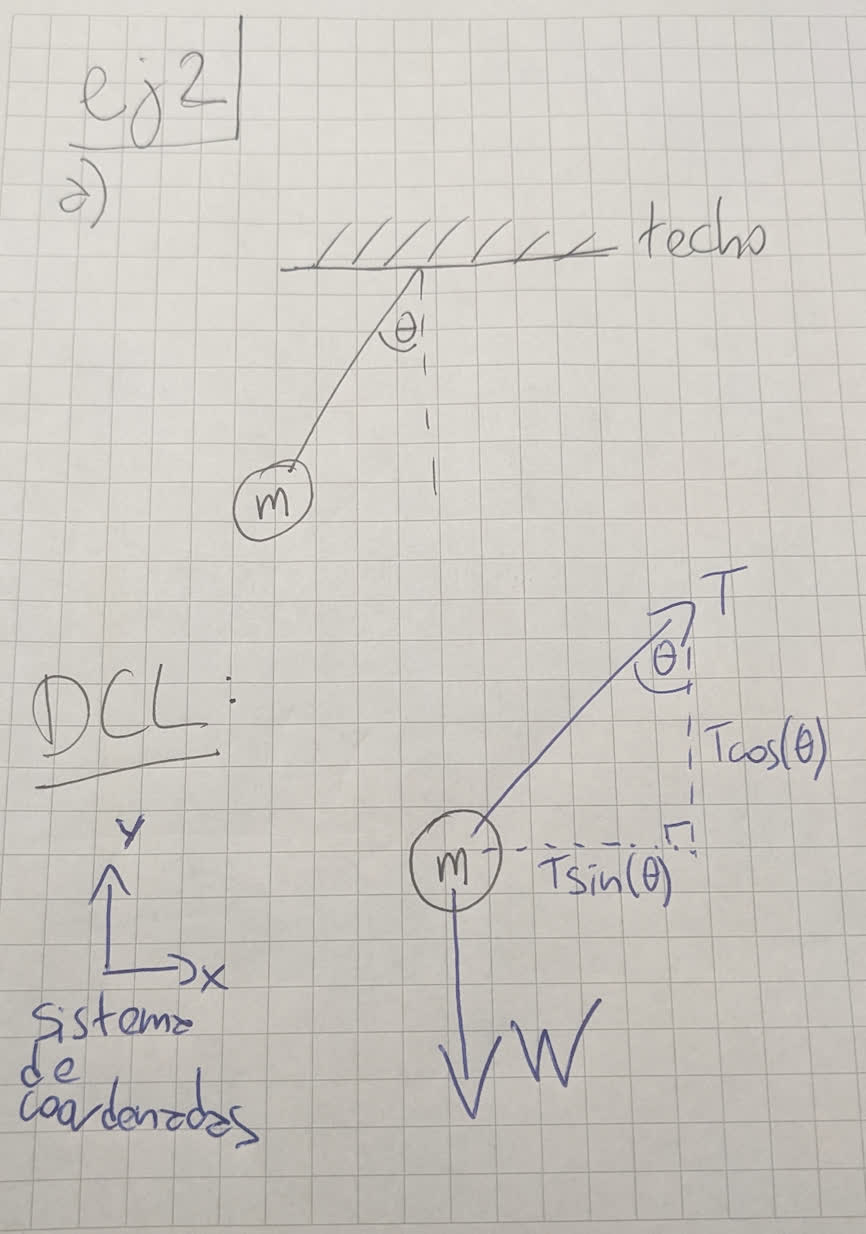 ej2
a)
techo
θ
m
DCL:
T
θ
Tcos(θ)
y
m
Tsin(θ)
x
Sistema
de
coordenadas
W